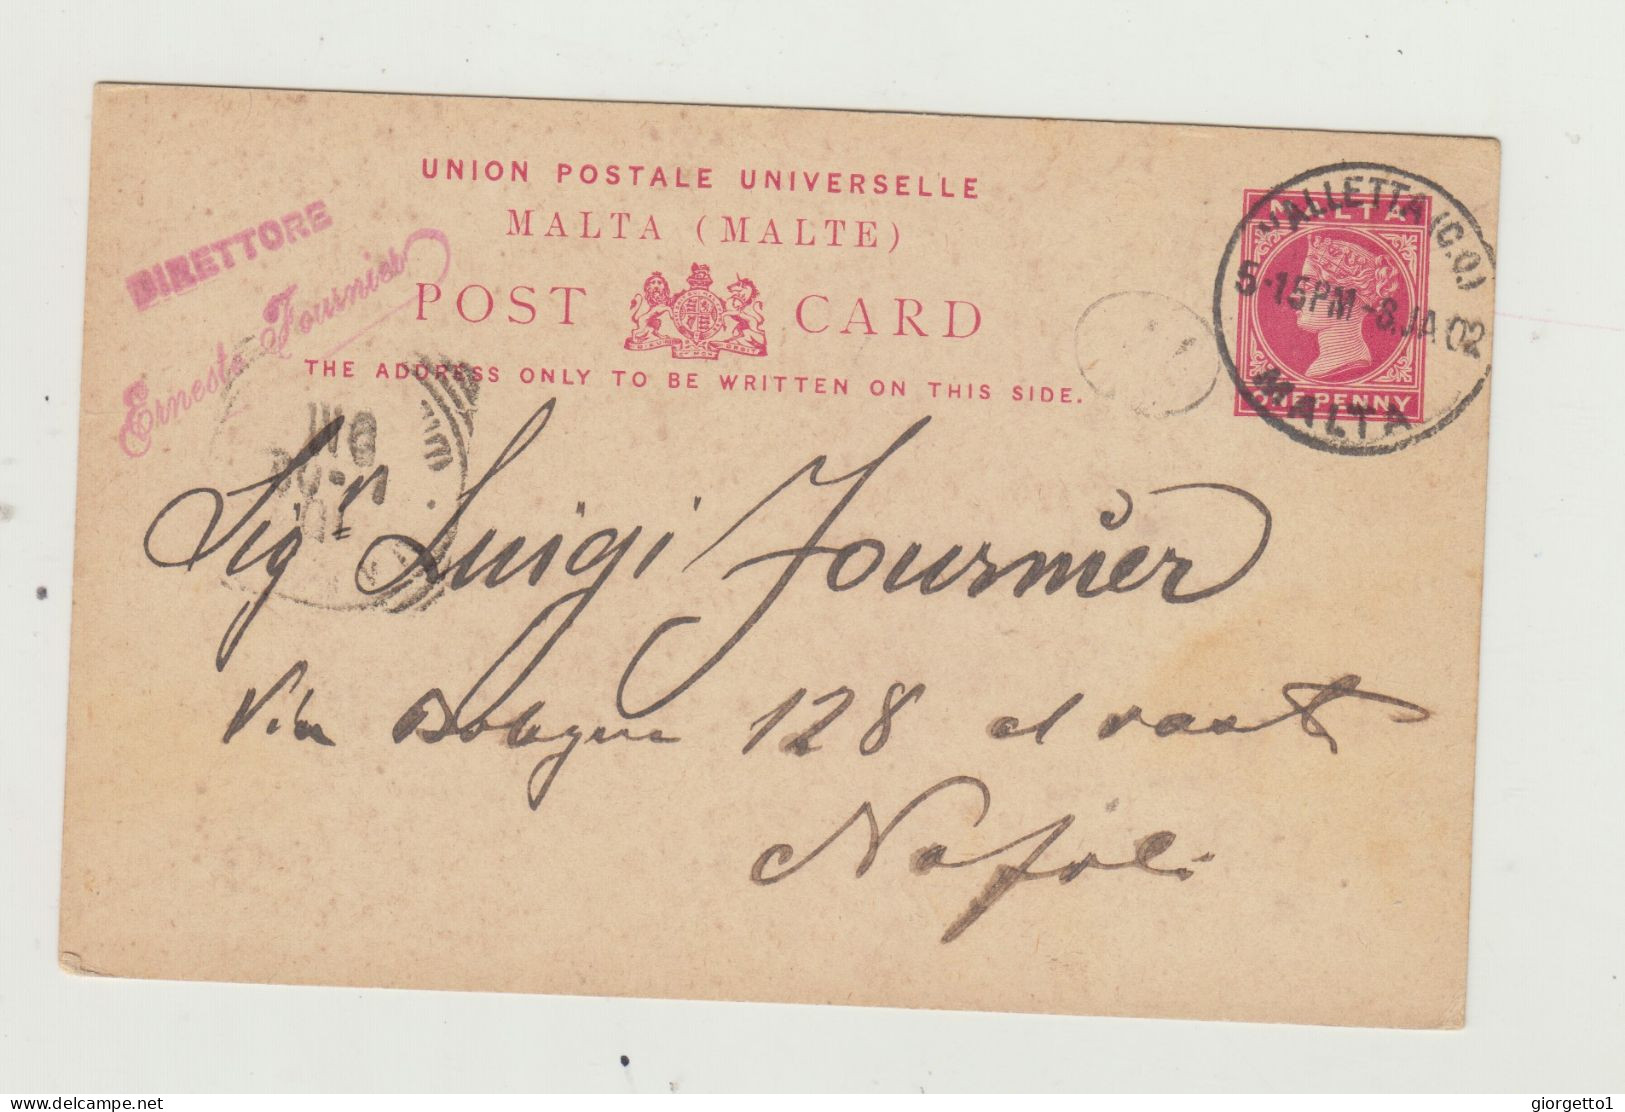 UNION POSTALE UNIVERSELLE
MALTA (MALTE)
POST CARD
THE ADDRESS ONLY TO BE WRITTEN ON THIS SIDE.
DIRETTORE
Ernesto Fournier
MALTA
ONE PENNY
VALLETTA (C.O.)
5·15PM-8.JA 02
MALTA
Sigr Luigi Fournier
Via Bologna 128
Napoli
delcampe.net
giorgetto1